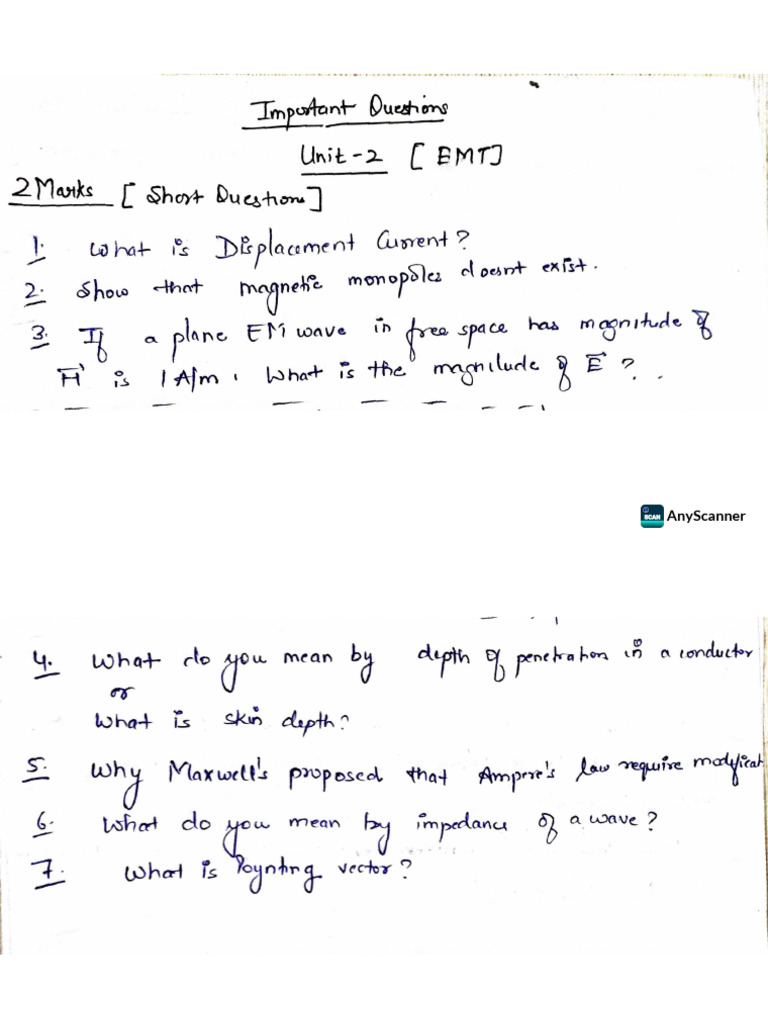 Important Questions
Unit-2 [EMT]
2 Marks [Short Questions]
1. What is Displacement Current?
2. Show that magnetic monopoles doesnt exist.
3. If a plane EM wave in free space has magnitude of
H is 1 A/m. What is the magnitude of E?
SCAN AnyScanner
4. What do you mean by depth of penetration in a conductor
or
What is skin depth?
5. Why Maxwell's proposed that Ampere's law require modificat
6. What do you mean by impedance of a wave?
7. What is Poynting vector?